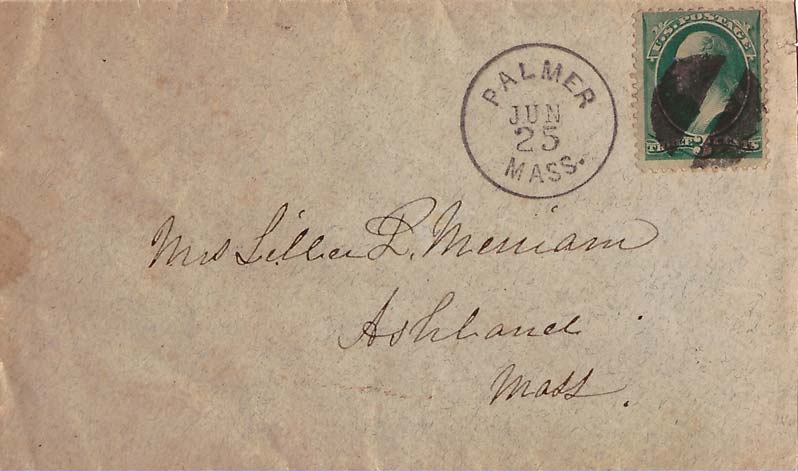 U.S. POSTAGE
THREE 3 CENTS
PALMER
JUN
25
MASS.
Mrs Lillie L. Merriam
Ashland
Mass.